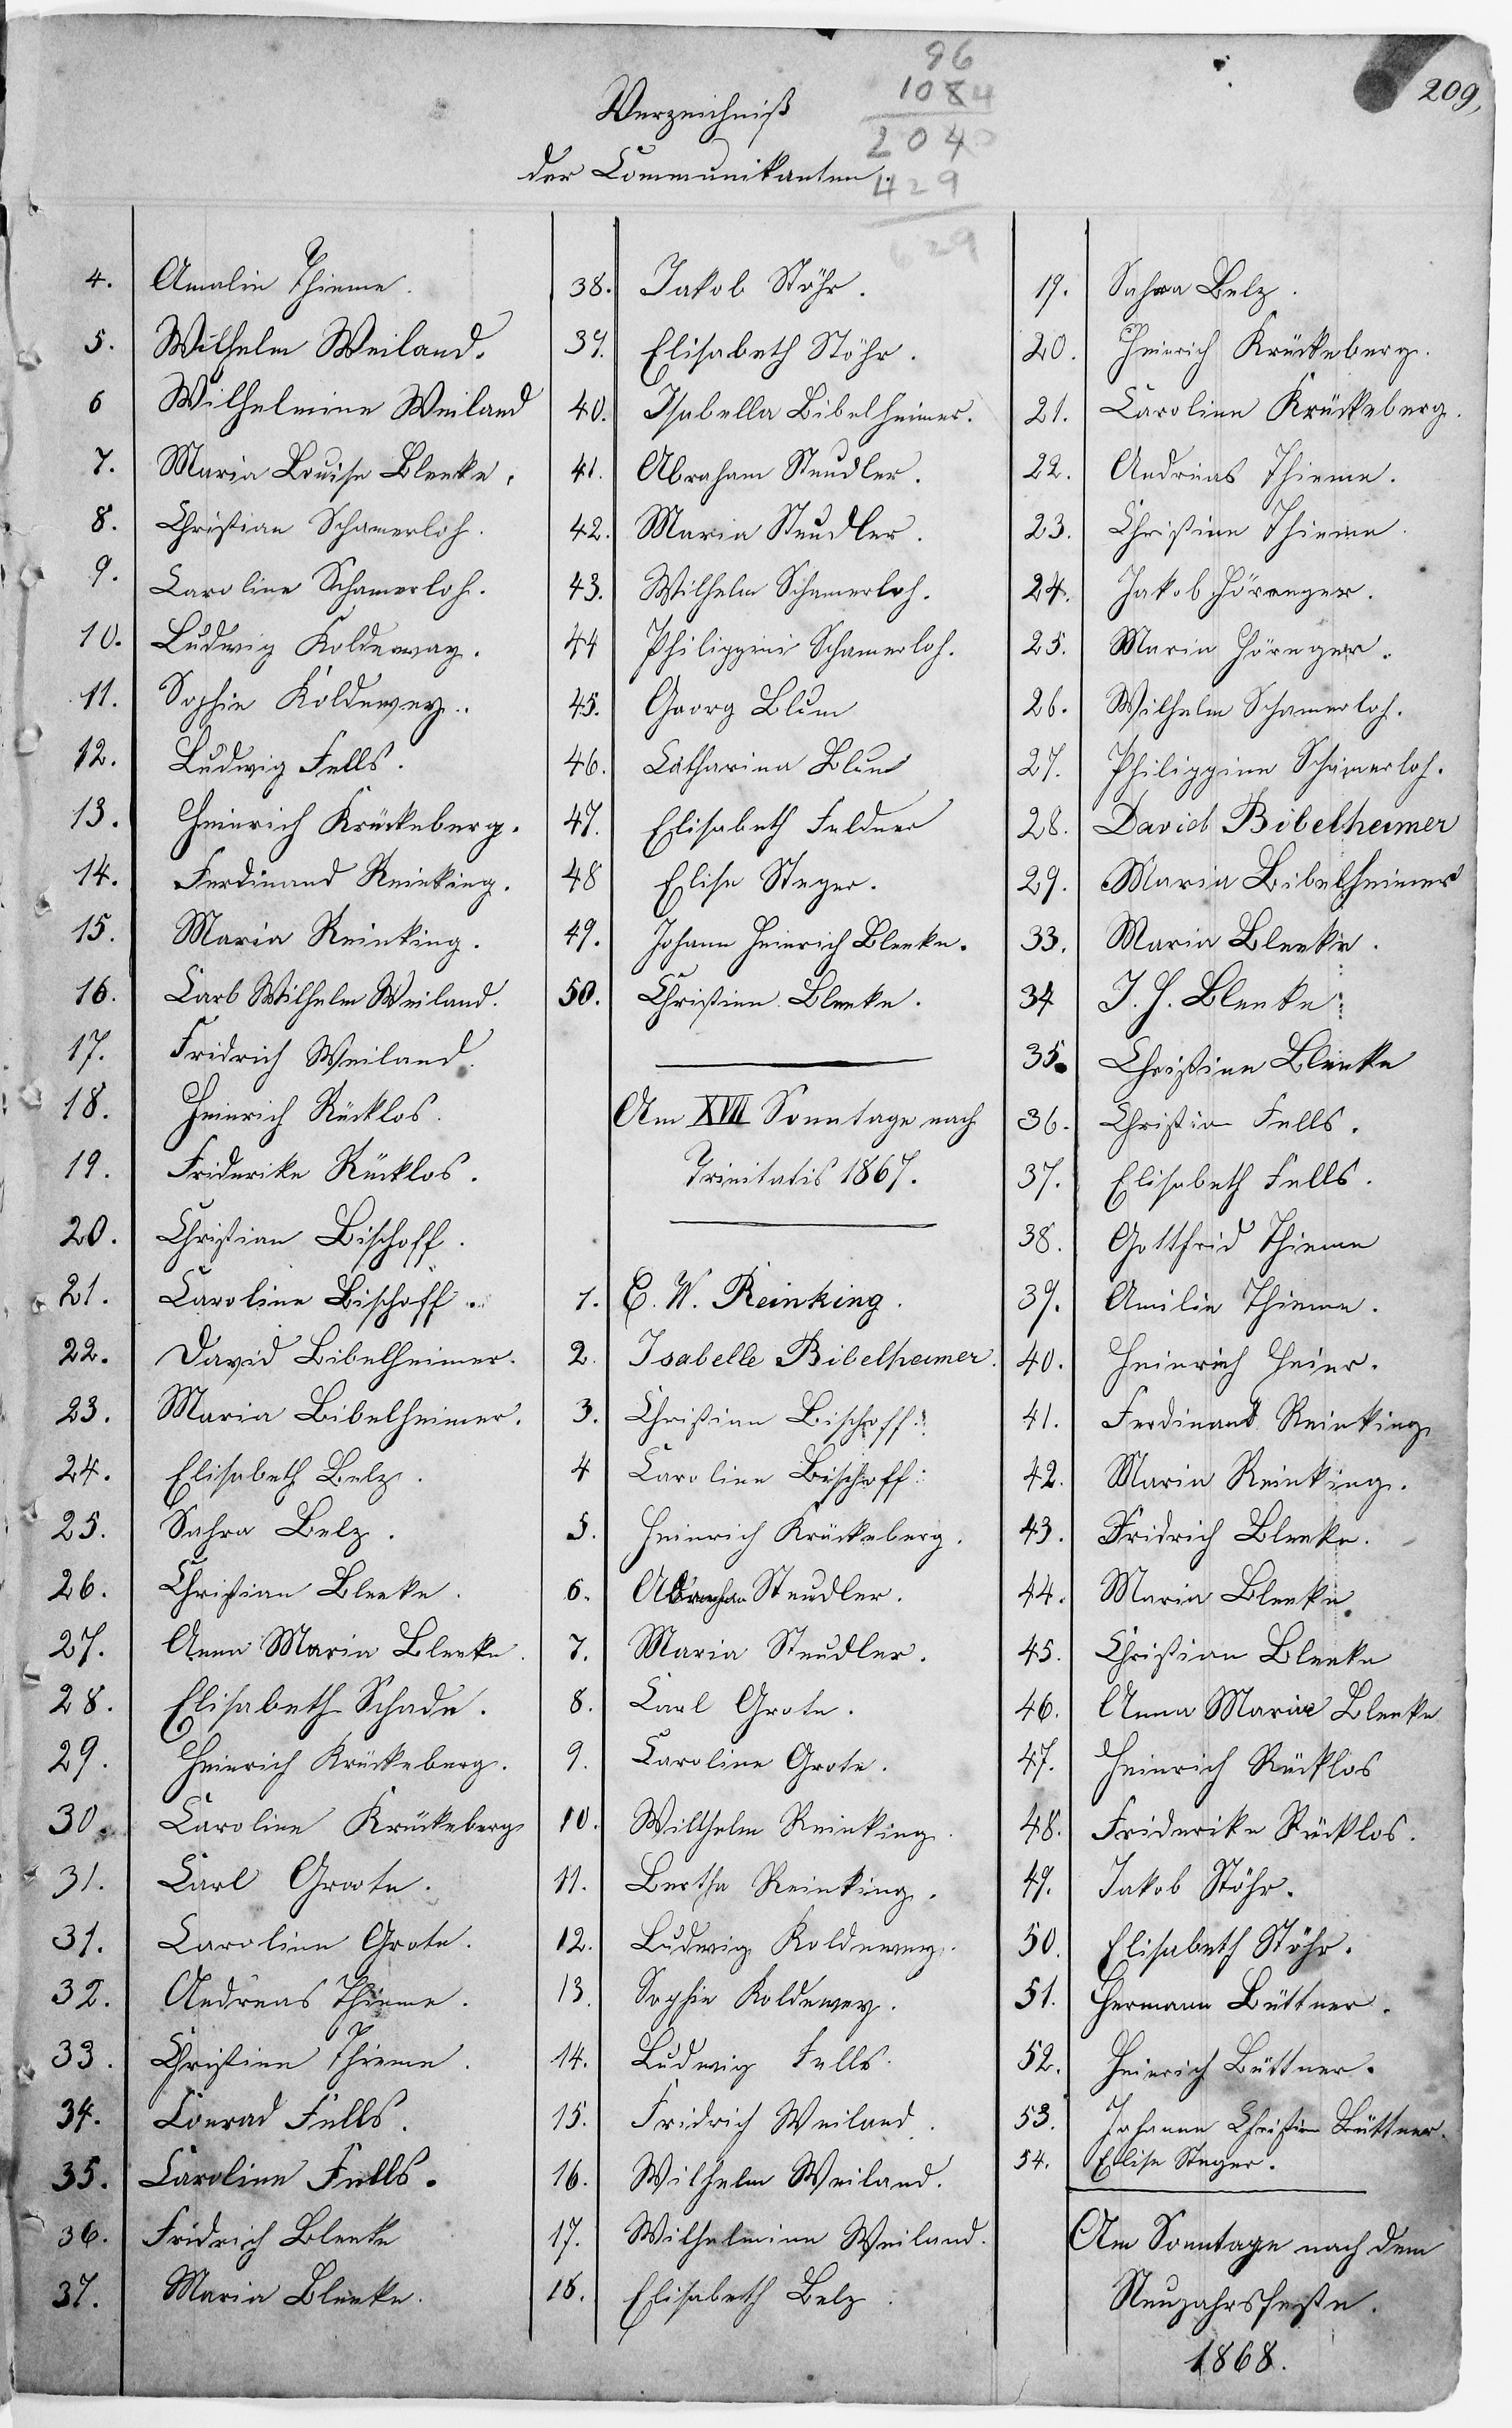 209,
96
1084
2040
429
629
Verzeichniß
der Communikanten.
4. Amalie Thieme.
5. Wilhelm Weiland.
6 Wilhelmine Weiland
7. Maria Louise Bleeke.
8. Christian Schamerloh.
9. Caroline Schamerloh.
10. Ludwig Koldeway.
11. Sophie Koldewey.
12. Ludwig Fells.
13. Heinrich Krückeberg.
14. Ferdinand Reinking.
15. Maria Reinking.
16. Carl Wilhelm Weiland.
17. Fridrich Weiland.
18. Heinrich Rücklos.
19. Friderike Rücklos.
20. Christian Bischoff.
21. Caroline Bischoff.
22. David Bibelheimer.
23. Maria Bibelheimer.
24. Elisabeth Belz.
25. Sahra Belz.
26. Christian Bleeke.
27. Anna Maria Bleeke.
28. Elisabeth Schade.
29. Heinrich Krückeberg.
30. Caroline Krückeberg
31. Carl Groote.
31. Caroline Grote.
32. Andreas Thieme.
33. Christine Thieme.
34. Conrad Fells.
35. Caroline Fells.
36. Fridrich Bleeke
37. Maria Bleeke.
38. Jakob Stöhr.
39. Elisabeth Stöhr.
40. Isabella Bibelheimer.
41. Abraham Steudler.
42. Maria Steudler.
43. Wilhelm Schamerloh.
44 Philippine Schamerloh.
45. Georg Blum
46. Catharina Blum
47. Elisabeth Feldner
48 Elise Steger.
49. Johann Heinrich Bleeke.
50. Christine Bleeke.
Am XVII Sonntage nach
Trinitatis 1867.
1. C. W. Reinking.
2. Isabelle Bibelheimer.
3. Christian Bischoff.
4 Caroline Bischoff.
5. Heinrich Krückeberg.
6. Abraham Steudler.
7. Maria Steudler.
8. Carl Grote.
9. Caroline Grote.
10. Wilhelm Reinking.
11. Bertha Reinking.
12. Ludwig Koldewey.
13. Sophie Koldewey.
14. Ludwig Fells.
15. Fridrich Weiland.
16. Wilhelm Weiland.
17. Wilhelmine Weiland.
18. Elisabeth Belz.
19. Sahra Belz.
20. Heinrich Krückeberg.
21. Caroline Krückeberg.
22. Andreas Thieme.
23. Christine Thieme.
24. Jakob Hörenger.
25. Maria Hörenger.
26. Wilhelm Schamerloh.
27. Philippine Schamerloh.
28. David Bibelheimer
29. Maria Bibelheimer
33. Maria Bleeke.
34 J. H. Bleeke
35. Christine Bleeke
36. Christian Fells.
37. Elisabeth Fells.
38. Gottfrid Thieme
39. Amilie Thieme.
40. Heinrich Heier.
41. Ferdinand Reinking
42. Maria Reinking.
43. Fridrich Bleeke.
44. Maria Bleeke.
45. Christian Bleeke
46. Anna Maria Bleeke
47. Heinrich Rücklos
48. Friderike Rücklos.
49. Jakob Stöhr.
50. Elisabeth Stöhr.
51. Hermann Büttner.
52. Heinrich Büttner.
53. Johanne Christine Büttner.
54. Elise Steger.
Am Sonntage nach dem
Neujahrsfeste.
1868.